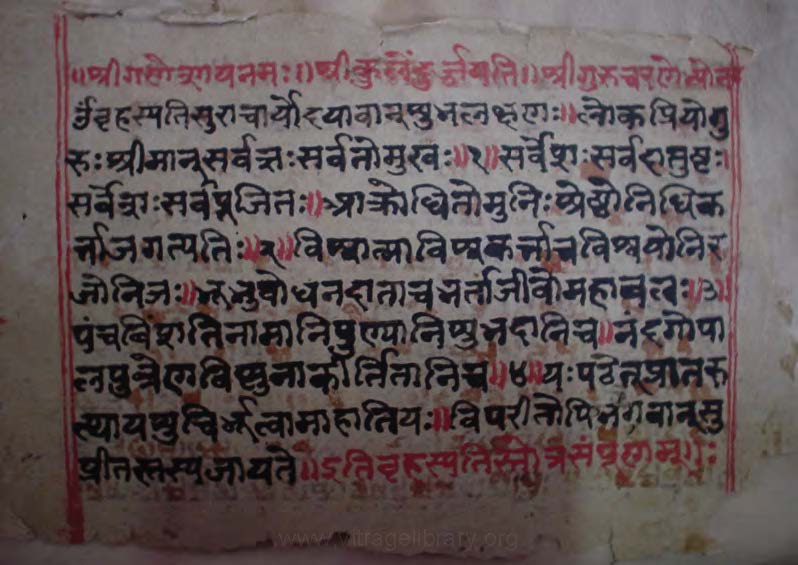 ॥श्रीगणेशायनमः॥श्रीकुलेंदुर्जयति॥श्रीगुरुचरणेभ्योन
बृहस्पतिसुराचार्योदयावान्शुभलक्षणः॥लोकप्रियोगु
रुःश्रीमान्सर्वज्ञःसर्वतोमुखः॥१॥सर्वेशःसर्वदातुष्टः
सर्वेशःसर्वपूजितः॥अक्रोधितोमुनिःश्रेष्ठोनिधिक
र्त्ताजगत्पतिः॥२॥विश्वात्माविश्वकर्त्ताचविश्वयोनिर
जोनिजः॥भूर्भुवोधनदाताचभर्ताजीवोमहाबलः॥३॥
पंचविंशतिनामानिपुण्यानिशुभदानिच॥नंदगोपा
लपुत्रेणविष्णुनाकीर्तितानिच॥४॥यःपठेत्प्रातरु
त्थायशुचिर्भूत्वामाहातियः॥विपरीतोपिभगवान्सु
प्रीतस्तस्यजायते॥इतिबृहस्पतिस्तोत्रसंपूर्णम्
www.vitragelibrary.org